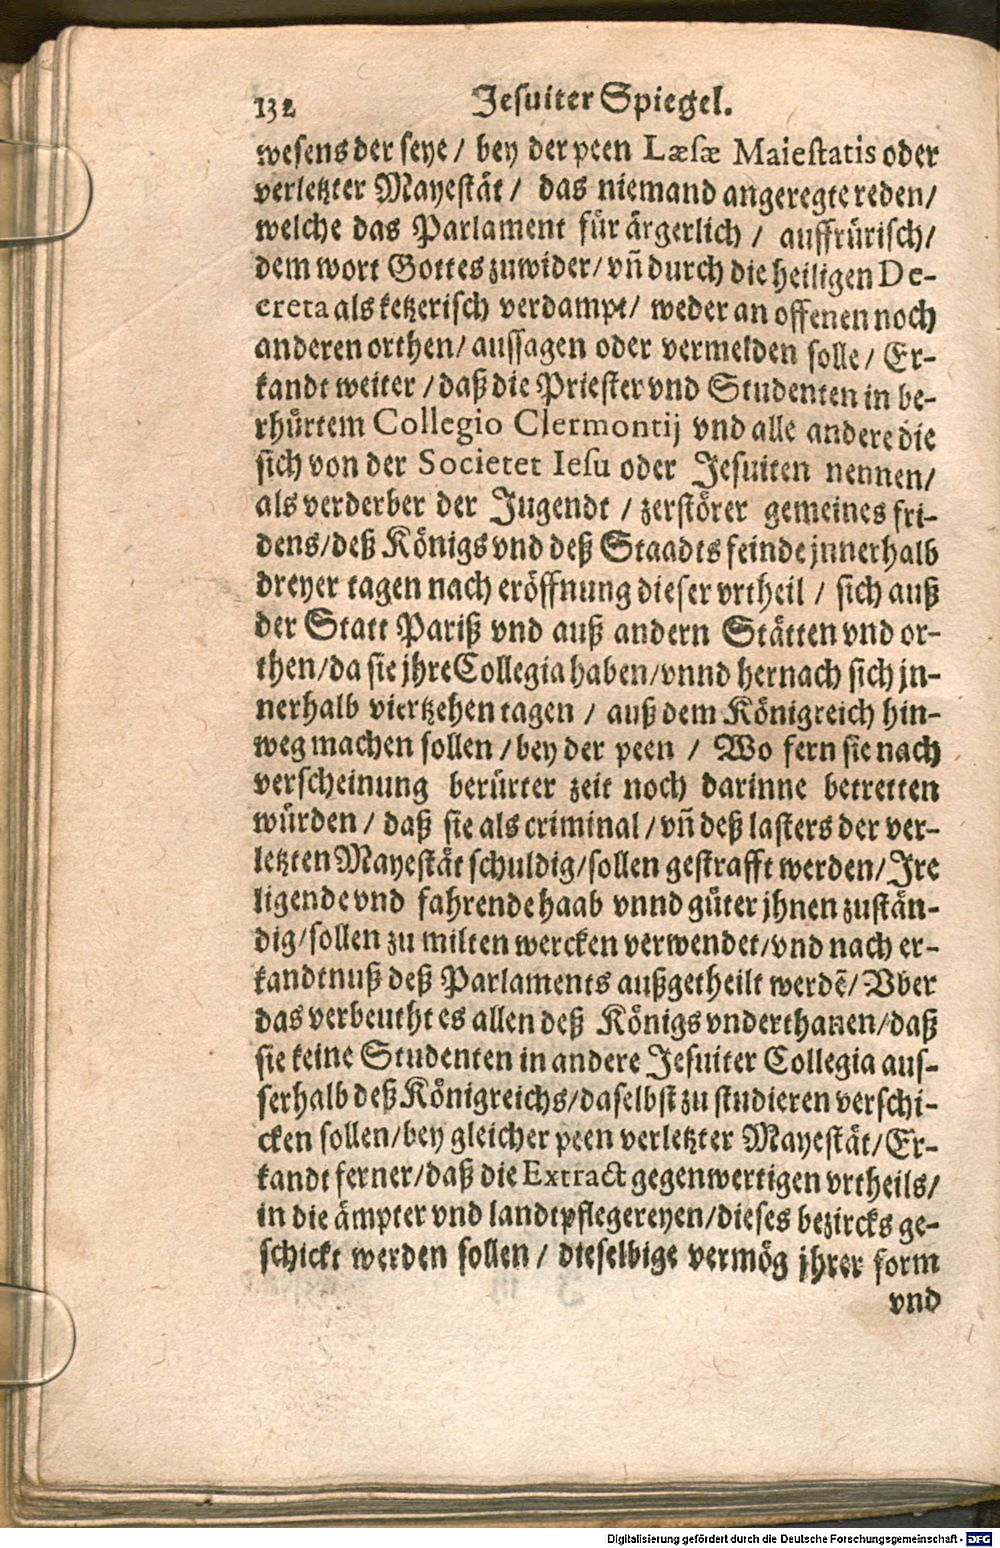 132 Jesuiter Spiegel.
wesens der seye / bey der peen Læsæ Maiestatis oder
verletzter Mayestät / das niemand angeregte reden/
welche das Parlament für ärgerlich / auffrürisch/
dem wort Gottes zuwider/ vñ durch die heiligen De-
creta als ketzerisch verdampt/ weder an offenen noch
anderen orthen/ aussagen oder vermelden solle/ Er-
kandt weiter / daß die Priester vnd Studenten in be-
rhürtem Collegio Clermontij vnd alle andere die
sich von der Societet Iesu oder Jesuiten nennen/
als verderber der Jugendt / zerstörer gemeines fri-
dens/deß Königs vnd deß Staadts feinde jnnerhalb
dreyer tagen nach eröffnung dieser vrtheil / sich auß
der Statt Pariß vnd auß andern Stätten vnd or-
then/da sie jhre Collegia haben/vnnd hernach sich jn-
nerhalb viertzehen tagen / auß dem Königreich hin-
weg machen sollen /bey der peen / Wo fern sie nach
verscheinung berürter zeit noch darinne betretten
würden / daß sie als criminal / vñ deß lasters der ver-
letzten Mayestät schuldig/sollen gestrafft werden/Ire
ligende vnd fahrende haab vnnd güter jhnen zustän-
dig/sollen zu milten wercken verwendet/vnd nach er-
kandtnuß deß Parlaments außgetheilt werdẽ/ Vber
das verbeutht es allen deß Königs vnderthanen/daß
sie keine Studenten in andere Jesuiter Collegia aus-
serhalb deß Königreichs/daselbst zu studieren verschi-
cken sollen/bey gleicher peen verletzter Mayestät/Er-
kandt ferner/daß die Extract gegenwertigen vrtheils/
in die ämpter vnd landtpflegereyen/dieses bezircks ge-
schickt werden sollen / dieselbige vermög jhrer form
vnd
Digitalisierung gefördert durch die Deutsche Forschungsgemeinschaft - DFG